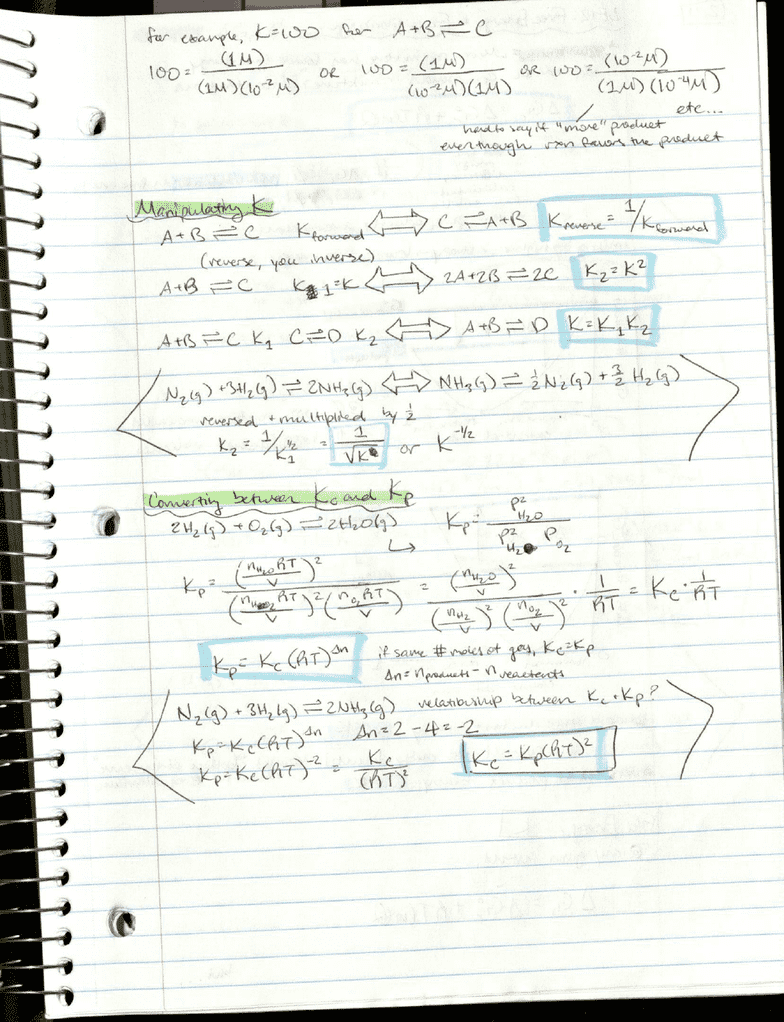 for example, K=100 for A+B ⇌ C
100 = (1M)/(1M)(10⁻²M) OR 100 = (1M)/(10⁻²M)(1M) OR 100 = (10⁻²M)/(1M)(10⁻⁴M)
etc...
hard to say if "more" product
even though rxn favors the product
Manipulating K
A+B ⇌ C K forward ⟺ C ⇌ A+B K reverse = 1/K forward
(reverse, you inverse)
A+B ⇌ C K₁=K ⟺ 2A+2B ⇌ 2C K₂=K²
A+B ⇌ C K₁ C ⇌ D K₂ ⟺ A+B ⇌ D K=K₁K₂
N₂(g) + 3H₂(g) ⇌ 2NH₃(g) ⟺ NH₃(g) ⇌ ½N₂(g) + 3/2 H₂(g)
reversed + multiplied by ½
K₂ = 1/K₁^½ = 1/√K or K^-1/2
Converting between Kc and Kp
2H₂(g) + O₂(g) ⇌ 2H₂O(g) ↳ Kp = P²H₂O / P²H₂ PO₂
Kp = (nH₂O RT/V)² / (nH₂ RT/V)² (nO₂ RT/V) = (nH₂O/V)² / (nH₂/V)² (nO₂/V)² · 1/RT = Kc · 1/RT
Kp = Kc (RT)^Δn if same # moles of gas, Kc=Kp
Δn = n products - n reactants
N₂(g) + 3H₂(g) ⇌ 2NH₃(g) relationship between Kc + Kp?
Kp = Kc(RT)^Δn Δn = 2 - 4 = -2
Kp = Kc(RT)⁻² = Kc/(RT)² Kc = Kp(RT)²